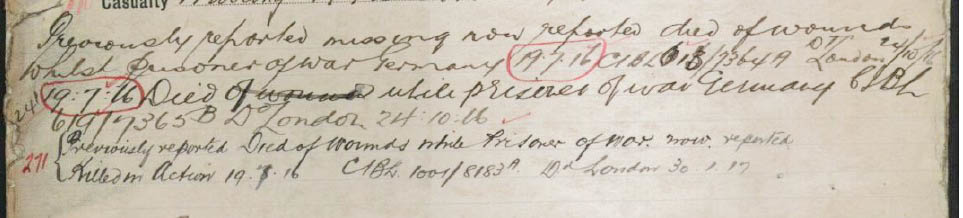 Casualty
Previously reported missing now reported died of wounds
whilst Prisoner of War Germany 19.7.16 CIBL 613/7364A DT/ London 24/10/16
241 19.7.16 Died of wounds while prisoner of war Germany CIBL
619/7365B Dd London 24.10.16
271 Previously reported Died of Wounds while Prisoner of War. now reported
Killed in Action 19.7.16 CIBL. 1001/8183A. Dd London 30.1.17